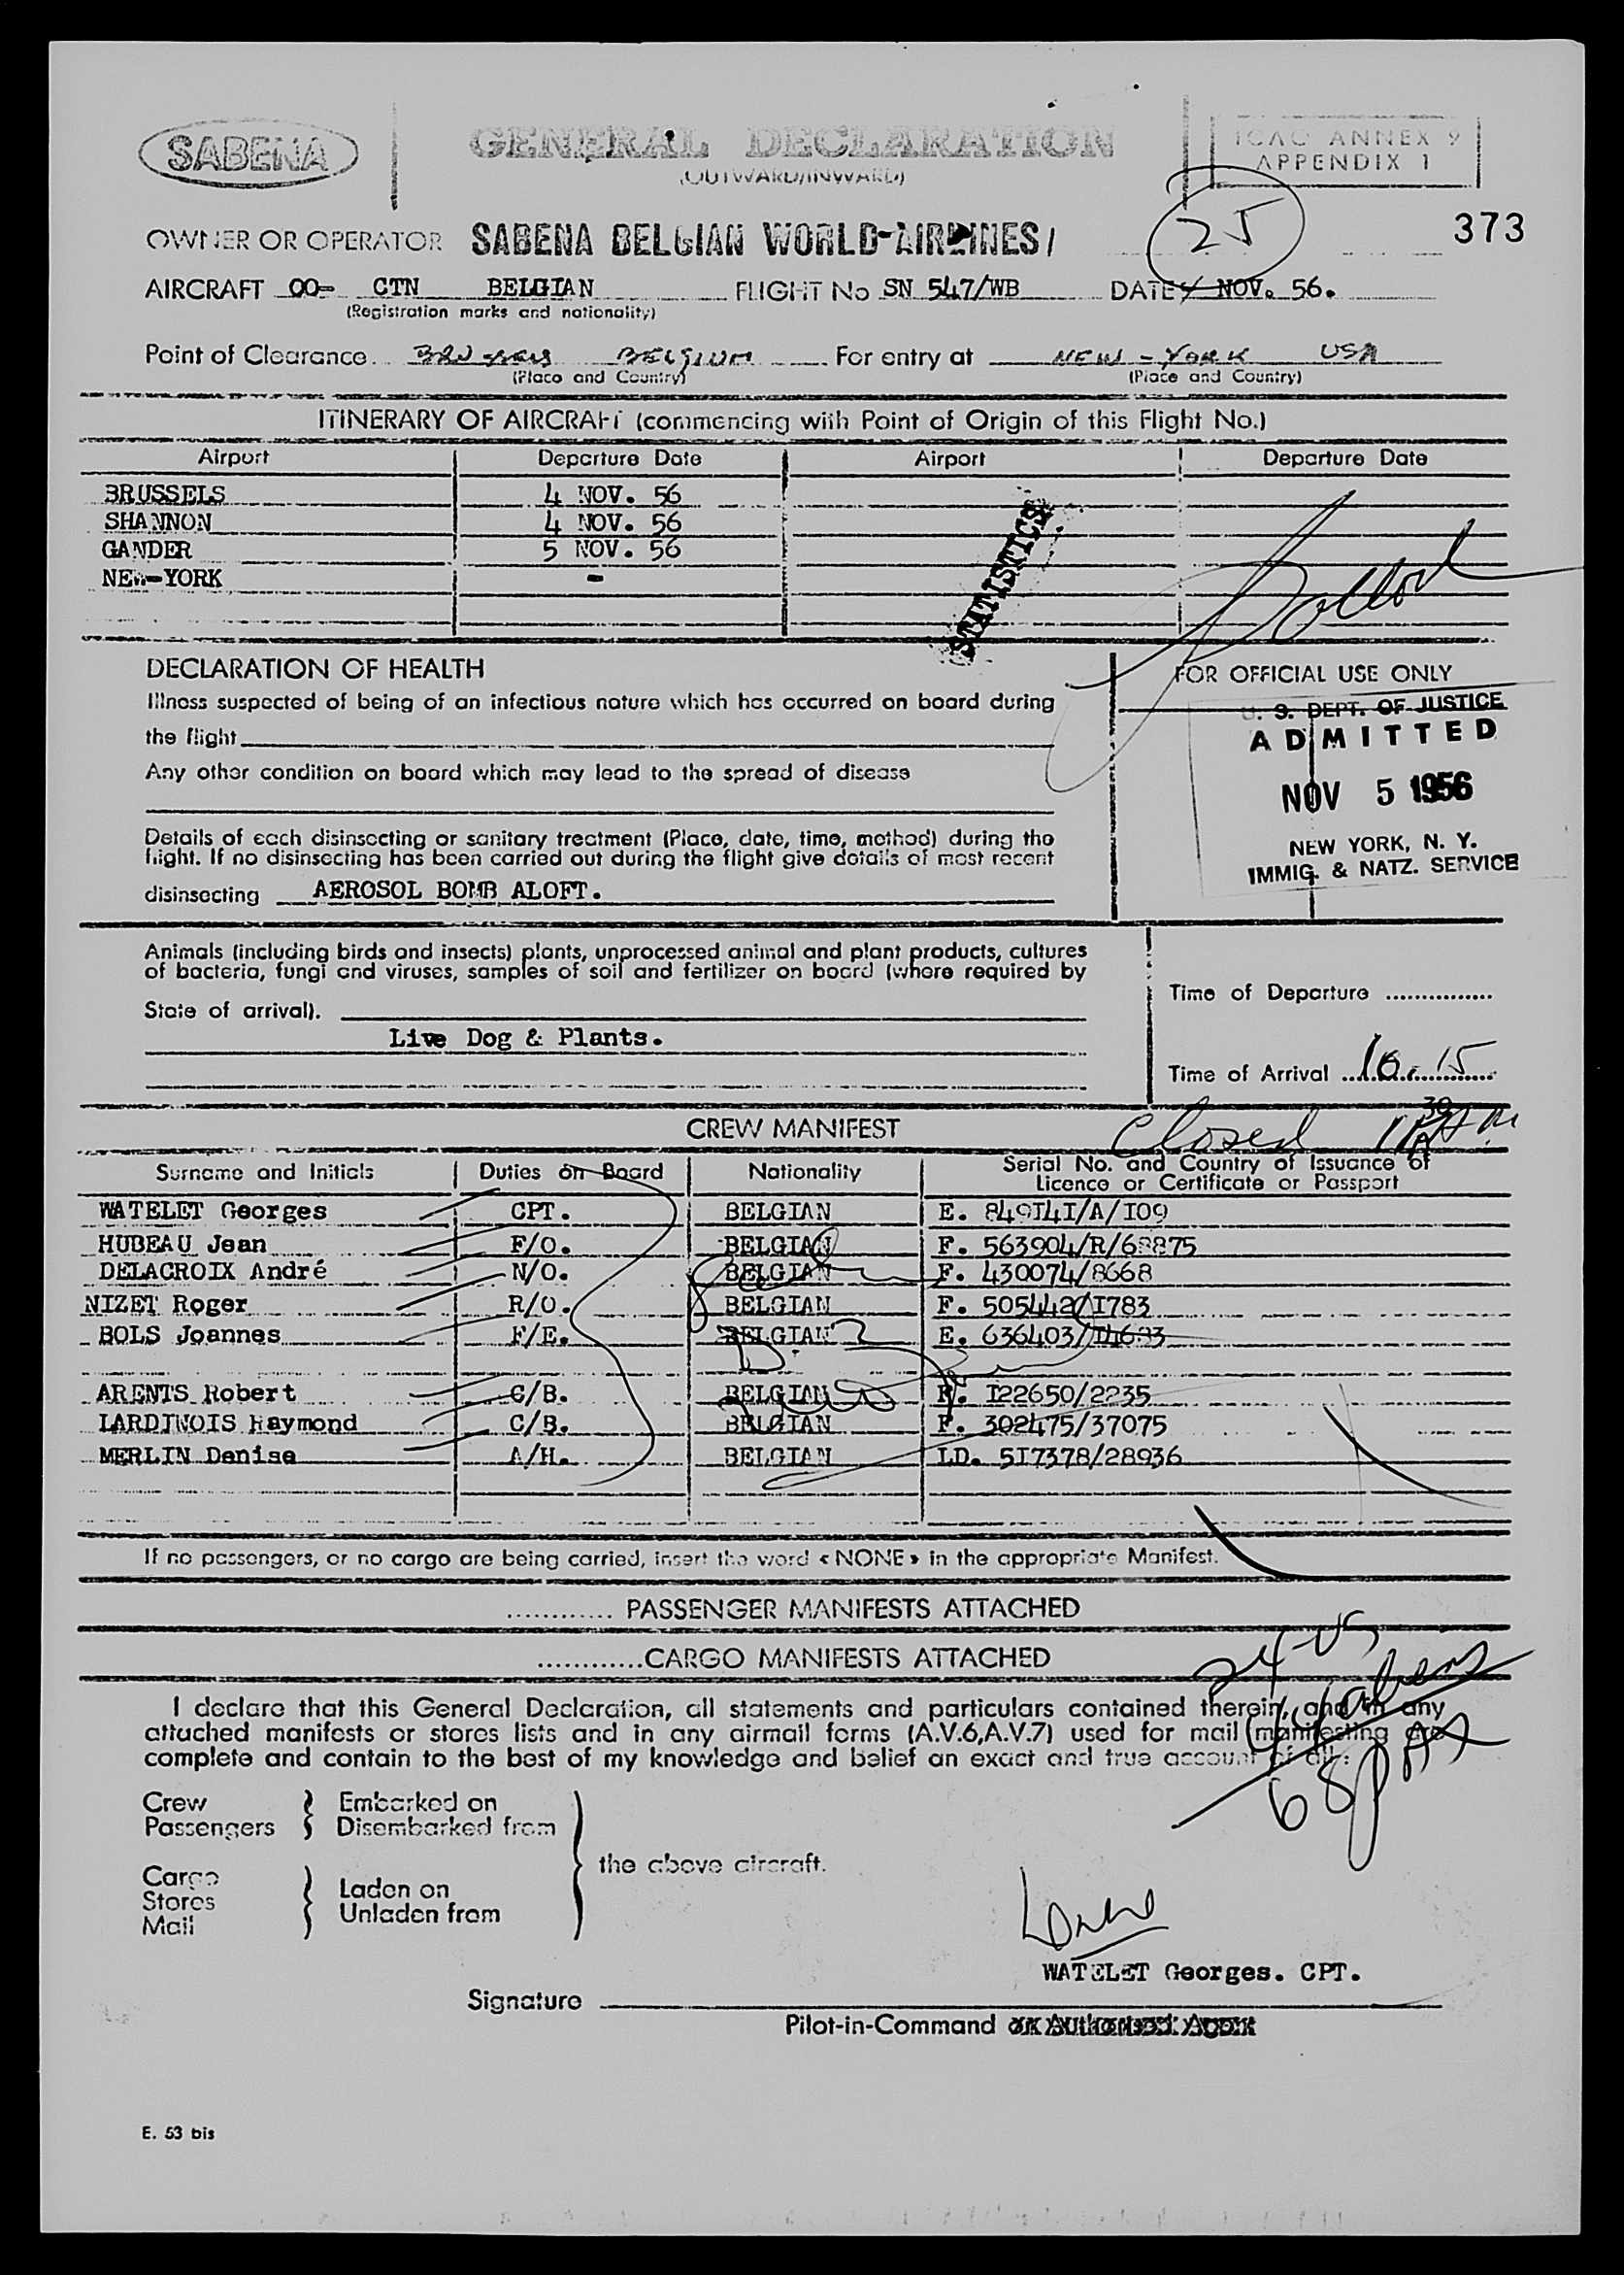 SABENA
GENERAL DECLARATION
(OUTWARD/INWARD)
ICAO ANNEX 9
APPENDIX 1
25
373
OWNER OR OPERATOR SABENA BELGIAN WORLD-AIRLINES/
AIRCRAFT OO- CTN BELGIAN FLIGHT No SN 547/WB DATE 4 NOV. 56.
(Registration marks and nationality)
Point of Clearance BRUSSELS BELGIUM For entry at NEW-YORK USA
(Place and Country) (Place and Country)
ITINERARY OF AIRCRAFT (commencing with Point of Origin of this Flight No.)
Airport Departure Date Airport Departure Date
BRUSSELS 4 NOV. 56
SHANNON 4 NOV. 56
GANDER 5 NOV. 56
NEW-YORK -
STATISTICS
DECLARATION OF HEALTH
Illness suspected of being of an infectious nature which has occurred on board during
the flight
Any other condition on board which may lead to the spread of disease
Details of each disinsecting or sanitary treatment (Place, date, time, method) during the
flight. If no disinsecting has been carried out during the flight give details of most recent
disinsecting AEROSOL BOMB ALOFT.
FOR OFFICIAL USE ONLY
U. S. DEPT. OF JUSTICE
ADMITTED
NOV 5 1956
NEW YORK, N. Y.
IMMIG. & NATZ. SERVICE
Animals (including birds and insects) plants, unprocessed animal and plant products, cultures
of bacteria, fungi and viruses, samples of soil and fertilizer on board (where required by
State of arrival).
Live Dog & Plants.
Time of Departure
Time of Arrival 10.15
Closed
CREW MANIFEST
Surname and Initials Duties on Board Nationality Serial No. and Country of Issuance of
Licence or Certificate or Passport
WATELET Georges CPT. BELGIAN E. 849I4I/A/I09
HUBEAU Jean F/O. BELGIAN F. 563904/R/68875
DELACROIX André N/O. BELGIAN F. 430074/8668
NIZET Roger R/O. BELGIAN F. 505442/I783
BOLS Joannes F/E. BELGIAN E. 636403/
ARENTS Robert C/B. BELGIAN F. I22650/2235
LARDINOIS Raymond C/B. BELGIAN F. 302475/37075
MERLIN Denise A/H. BELGIAN LD. 5I7378/28936
If no passengers, or no cargo are being carried, insert the word « NONE » in the appropriate Manifest.
............ PASSENGER MANIFESTS ATTACHED
............ CARGO MANIFESTS ATTACHED
24-US
44 aliens
68 PAX
I declare that this General Declaration, all statements and particulars contained therein, and in any
attached manifests or stores lists and in any airmail forms (A.V.6,A.V.7) used for mail manifesting are
complete and contain to the best of my knowledge and belief an exact and true account of all:
Crew
Passengers
Embarked on
Disembarked from
the above aircraft.
Cargo
Stores
Mail
Laden on
Unladen from
WATELET Georges. CPT.
Signature
Pilot-in-Command or Authorized Agent
E. 53 bis